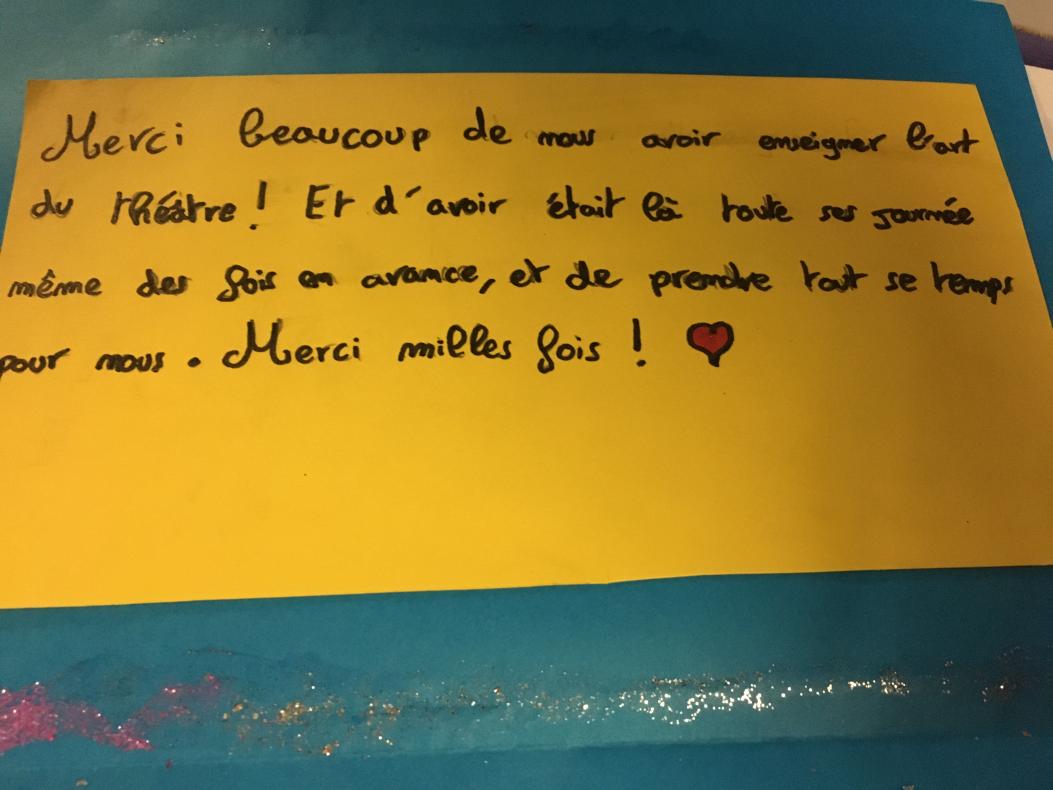 Merci beaucoup de nous avoir enseigner l'art
du théâtre ! Et d'avoir était là toute ses journée
même des fois en avance, et de prendre tout se temps
pour nous. Merci milles fois ! ❤